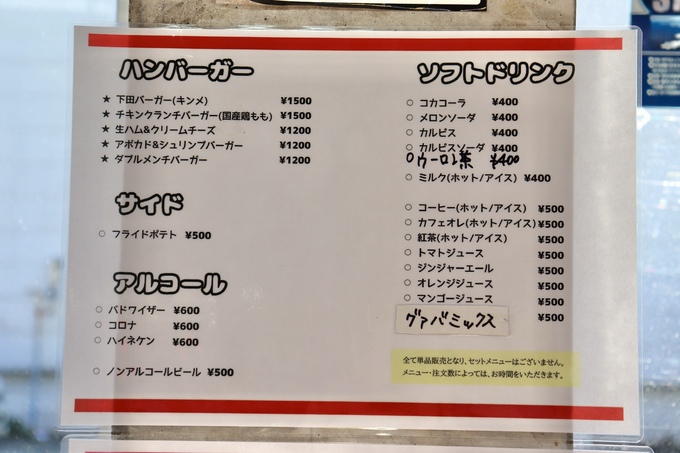 ハンバーガー
★ 下田バーガー(キンメ) ¥1500
★ チキンクランチバーガー(国産鶏もも) ¥1500
★ 生ハム&クリームチーズ ¥1200
★ アボカド&シュリンプバーガー ¥1200
★ ダブルメンチバーガー ¥1200
サイド
○ フライドポテト ¥500
アルコール
○ バドワイザー ¥600
○ コロナ ¥600
○ ハイネケン ¥600
○ ノンアルコールビール ¥500
ソフトドリンク
○ コカコーラ ¥400
○ メロンソーダ ¥400
○ カルピス ¥400
○ カルピスソーダ ¥400
○ ウーロン茶 ¥400
○ ミルク(ホット/アイス) ¥400
○ コーヒー(ホット/アイス) ¥500
○ カフェオレ(ホット/アイス) ¥500
○ 紅茶(ホット/アイス) ¥500
○ トマトジュース ¥500
○ ジンジャーエール ¥500
○ オレンジジュース ¥500
○ マンゴージュース ¥500
グァバミックス ¥500
全て単品販売となり、セットメニューはございません。
メニュー・注文数によっては、お時間をいただきます。